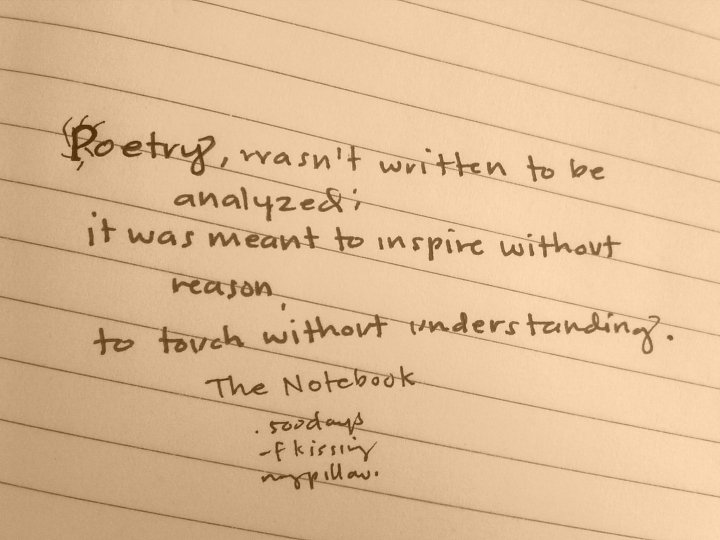 Poetry, wasn't written to be
analyzed;
it was meant to inspire without
reason,
to touch without understanding.
The Notebook
. 500days
-f kissing
mypillow.